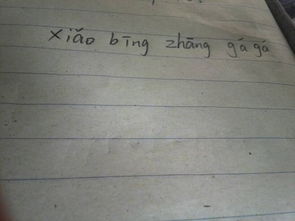 xiǎo bīng zhāng gá gá